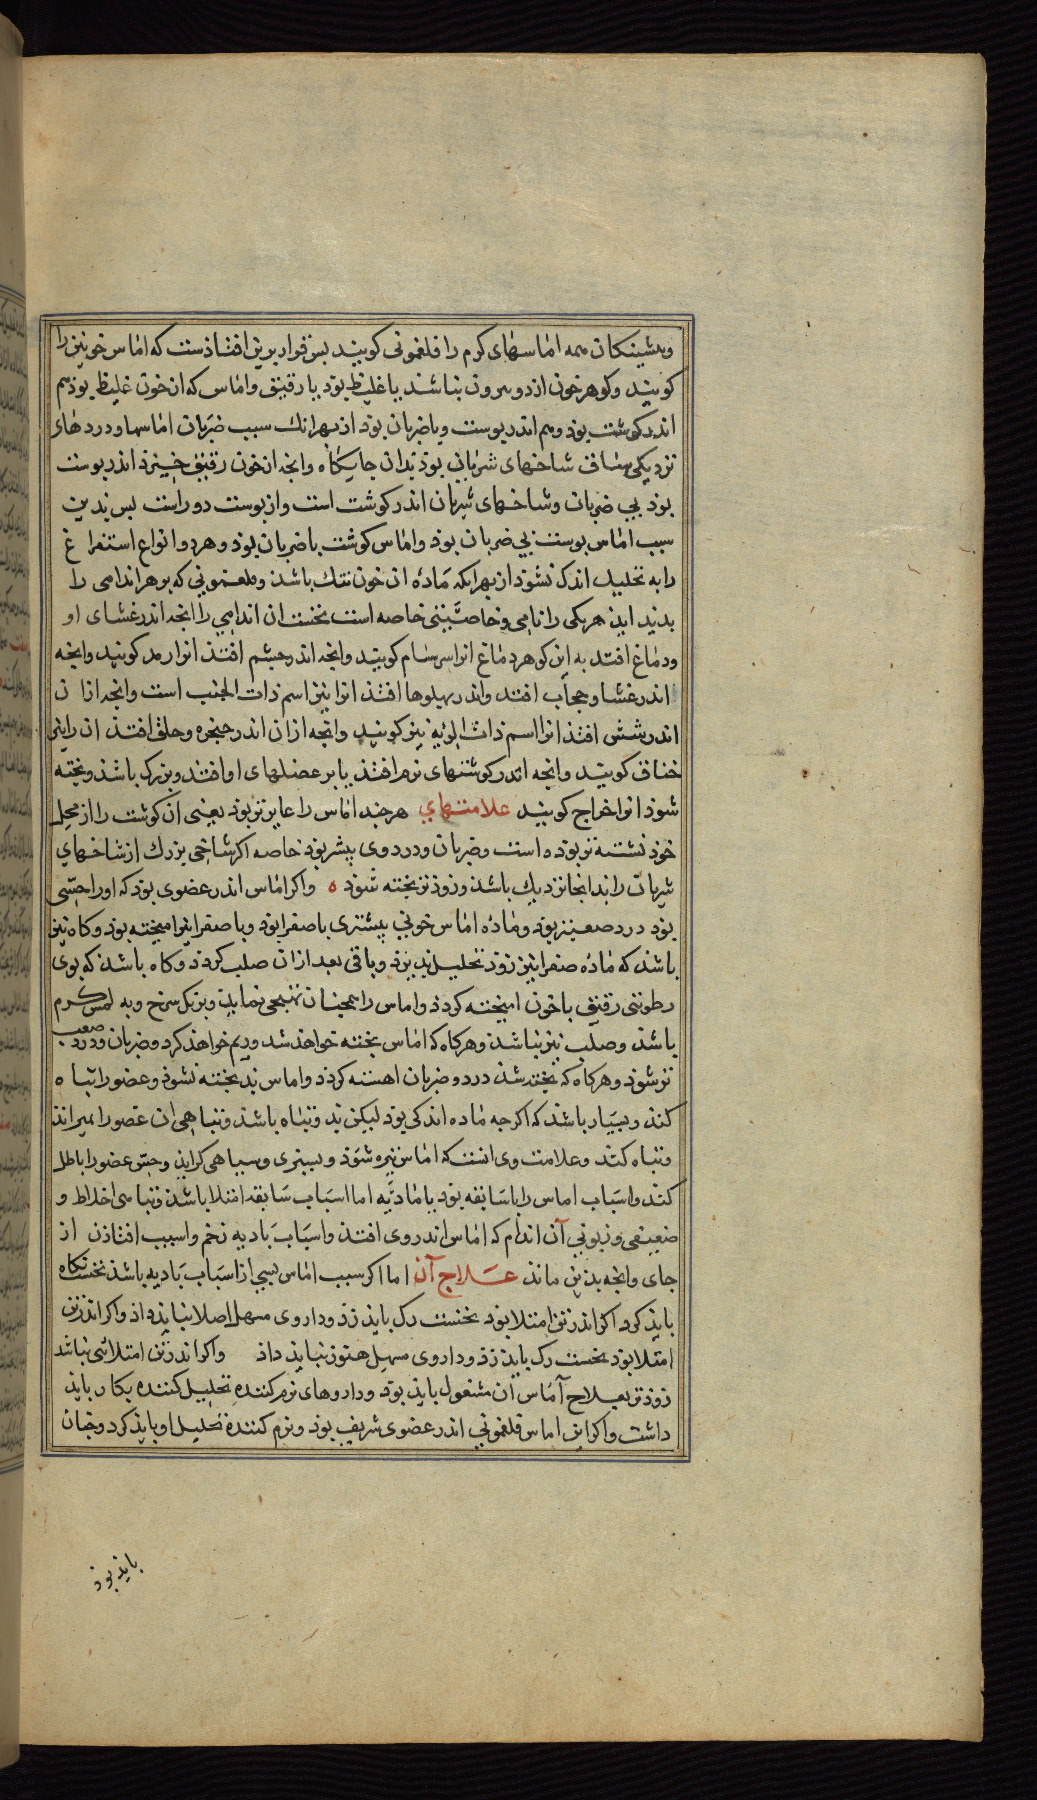 وپیشینکان همه اماسهای کرم را فلغمونی کویند بس قرار برین افتاذست که اماس خونین را
کویند وکوهر خون از دو بیرون نباشد یا غلیظ بوذ یا رقیق واماس که از خون غلیظ بوذ هم
اندر کوشت بوذ وهم اندر پوست وبا ضربان بوذ از بهر انك سبب ضربان اماسها ودردهای
نزدیکی شاخهای شریانی بوذ بدان جایکاه وانجه از خون رقیق خیزد اندر پوست
بوذ بی ضربان وشاخهای شریان اندر کوشت است واز پوست دور است بس بدین
سبب اماس پوست بی ضربان بوذ واماس کوشت با ضربان بوذ وهر دو انواع استفراغ
را به تحلیل اندک نشوذ از بهر انکه ماده ان خون تنك باشذ وفلغمونی که بر هر اندامی را
بدید آید هر یکی را نامی وخاصیتی خاصه است نخست ان اندامی را انجه اندر غشای او
ودماغ افتد به این کوهر دماغ انرا سرسام کویند وانجه اندر جشم افتذ انرا رمد کویند وانجه
اندر غشا وحجاب افتد واندر پهلوها افتذ انرا نیز اسم ذات الجنب است وانجه ازان
اندر شش افتذ انرا اسم ذات الریه نیز کویند وانجه ازان اندر حنجره وحلق افتذ ان را نیز
خناق کویند وانجه اندر کوشتهای نرم افتذ یا بر عضلهای او افتد وبزرک باشذ وپخته
شوذ انرا خراج کویند علامتهای هرجند اماس را عایرتر بوذ یعنی ان کوشت را از محل
خوذ نشسته تر بوده است وضربان ودرد وی بیشر بوذ خاصه اکر شاخی بزرك از شاخهای
شریان را بدانجا نزدیك باشذ وزوذتر پخته شوذ ه واکر اماس اندر عضوی بوذ که او را حسی
بوذ درد صعبتر بوذ وماده اماس خونی بیشتری با صفرا بوذ وبا صفرا نیز امیخته بوذ وکاه نیز
باشذ که ماده صفرا نیز زوذ تحلیل پذیرذ وباقی بعد ازان صلب کردذ وکاه باشذ که بوی
رطوبتی رقیق با خون امیخته کردذ واماس را همچنان تهبجی نماید وبرنکل سرخ وبه لمس کرم
باشذ وصلب نیز نباشذ وهرکاه که اماس پخته خواهذ شد وریم خواهذ کرد وضربان ودرد صعب
تر شوذ وهرکاه که پخته شذ درد وضربان اهسته کردذ واماس بد پخته نشوذ وعضو را تباه
کنذ وبسیار باشذ که اکرجه ماده اندکی بوذ لیکن بد وتباه باشذ وتباهی ان عضو را بمیراند
وتباه کند وعلامت وی انست که اماس تیره شوذ وبسبزی وسیاهی کراید وحس عضو را باطل
کند واسباب اماس را با سابقه بوذ یا مادیه اما اسباب سابقه امتلا باشذ وتباهی اخلاط و
ضعیفی وزبونی آن اندام که اماس اندر وی افتذ واسباب بادیه زخم واسیب افتاذن از
جای وانجه بذین مانذ علاج آن اما اکر سبب اماس سببی از اسباب بادیه باشذ نخست نکاه
بایذ کرد اکر اندر تن امتلا بوذ نخست رک بایذ زذ وداروی مسهل اصلا نبایذ داذ واکر اندر تن
امتلا بوذ نخست رک بایذ زذ وداروی مسهل هنوز نبایذ داذ واکر اندر تن امتلائی نباشد
زوذتر بعلاج آماس ان مشغول بایذ بوذ وداروهای نرم کننده تحلیل کننده بکار بایذ
داشت واکر این اماس فلغمونی اندر عضوی شریف بوذ ونرم کننده تحلیل او بایذ کرد وجنان
بایذ بوذ